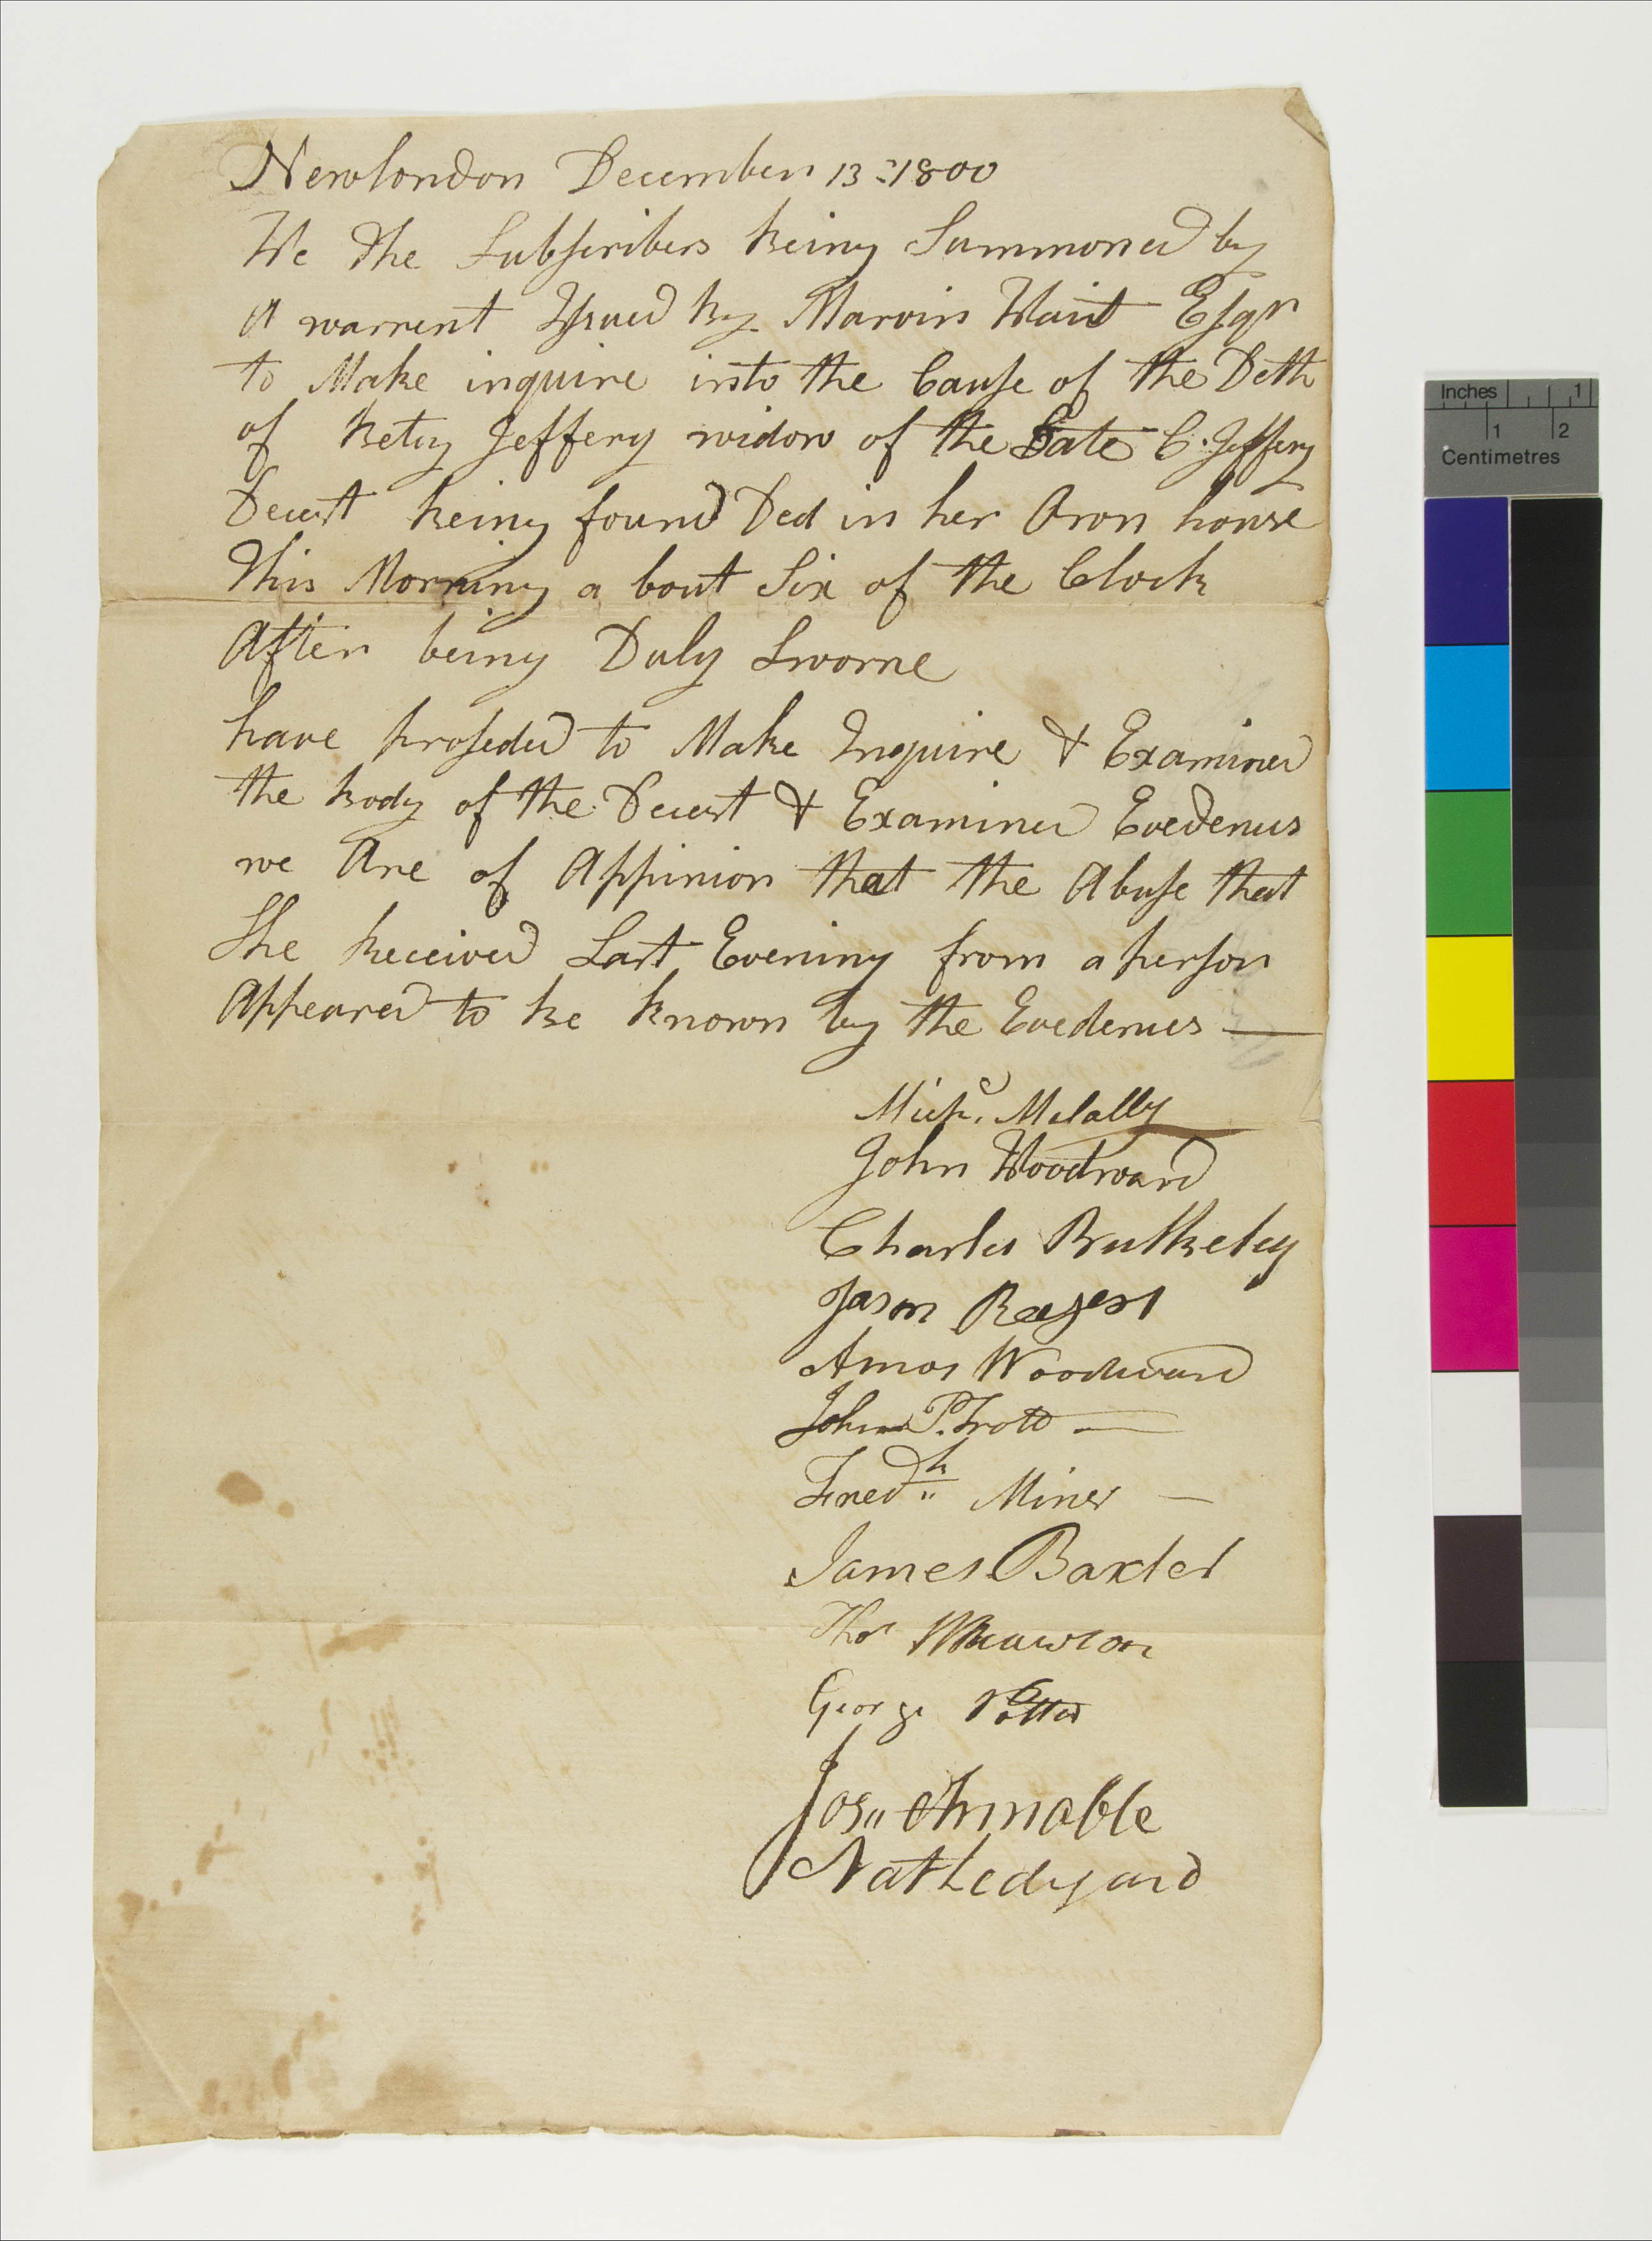 Newlondon December 13 1800
We the Subscribers being Summoned by
A warrent Issued by Marvin Wait Esqr
to Make inquire into the Cause of the Deth
of Betsy Jeffery widow of the Late C. Jeffery
Decest being found Ded in her Own house
this Morning a bout Six of the Clock
After being Duly Sworne
have proseded to Make Inquire & Examined
the body of the Decest & Examined Evedences
we Are of Appinion that the Abuse that
She Received Last Evening from a person
Appeared to be known by the Evedences —
Mich. Melally
John Woodward
Charles Bulkeley
Jason Rogers
Amos Woodward
John P. Trott —
Fred:k Miner —
James Baxter
Thos
George Potter
Jos,, Annable
Nat Ledyard
Inches 1
1 2
Centimetres